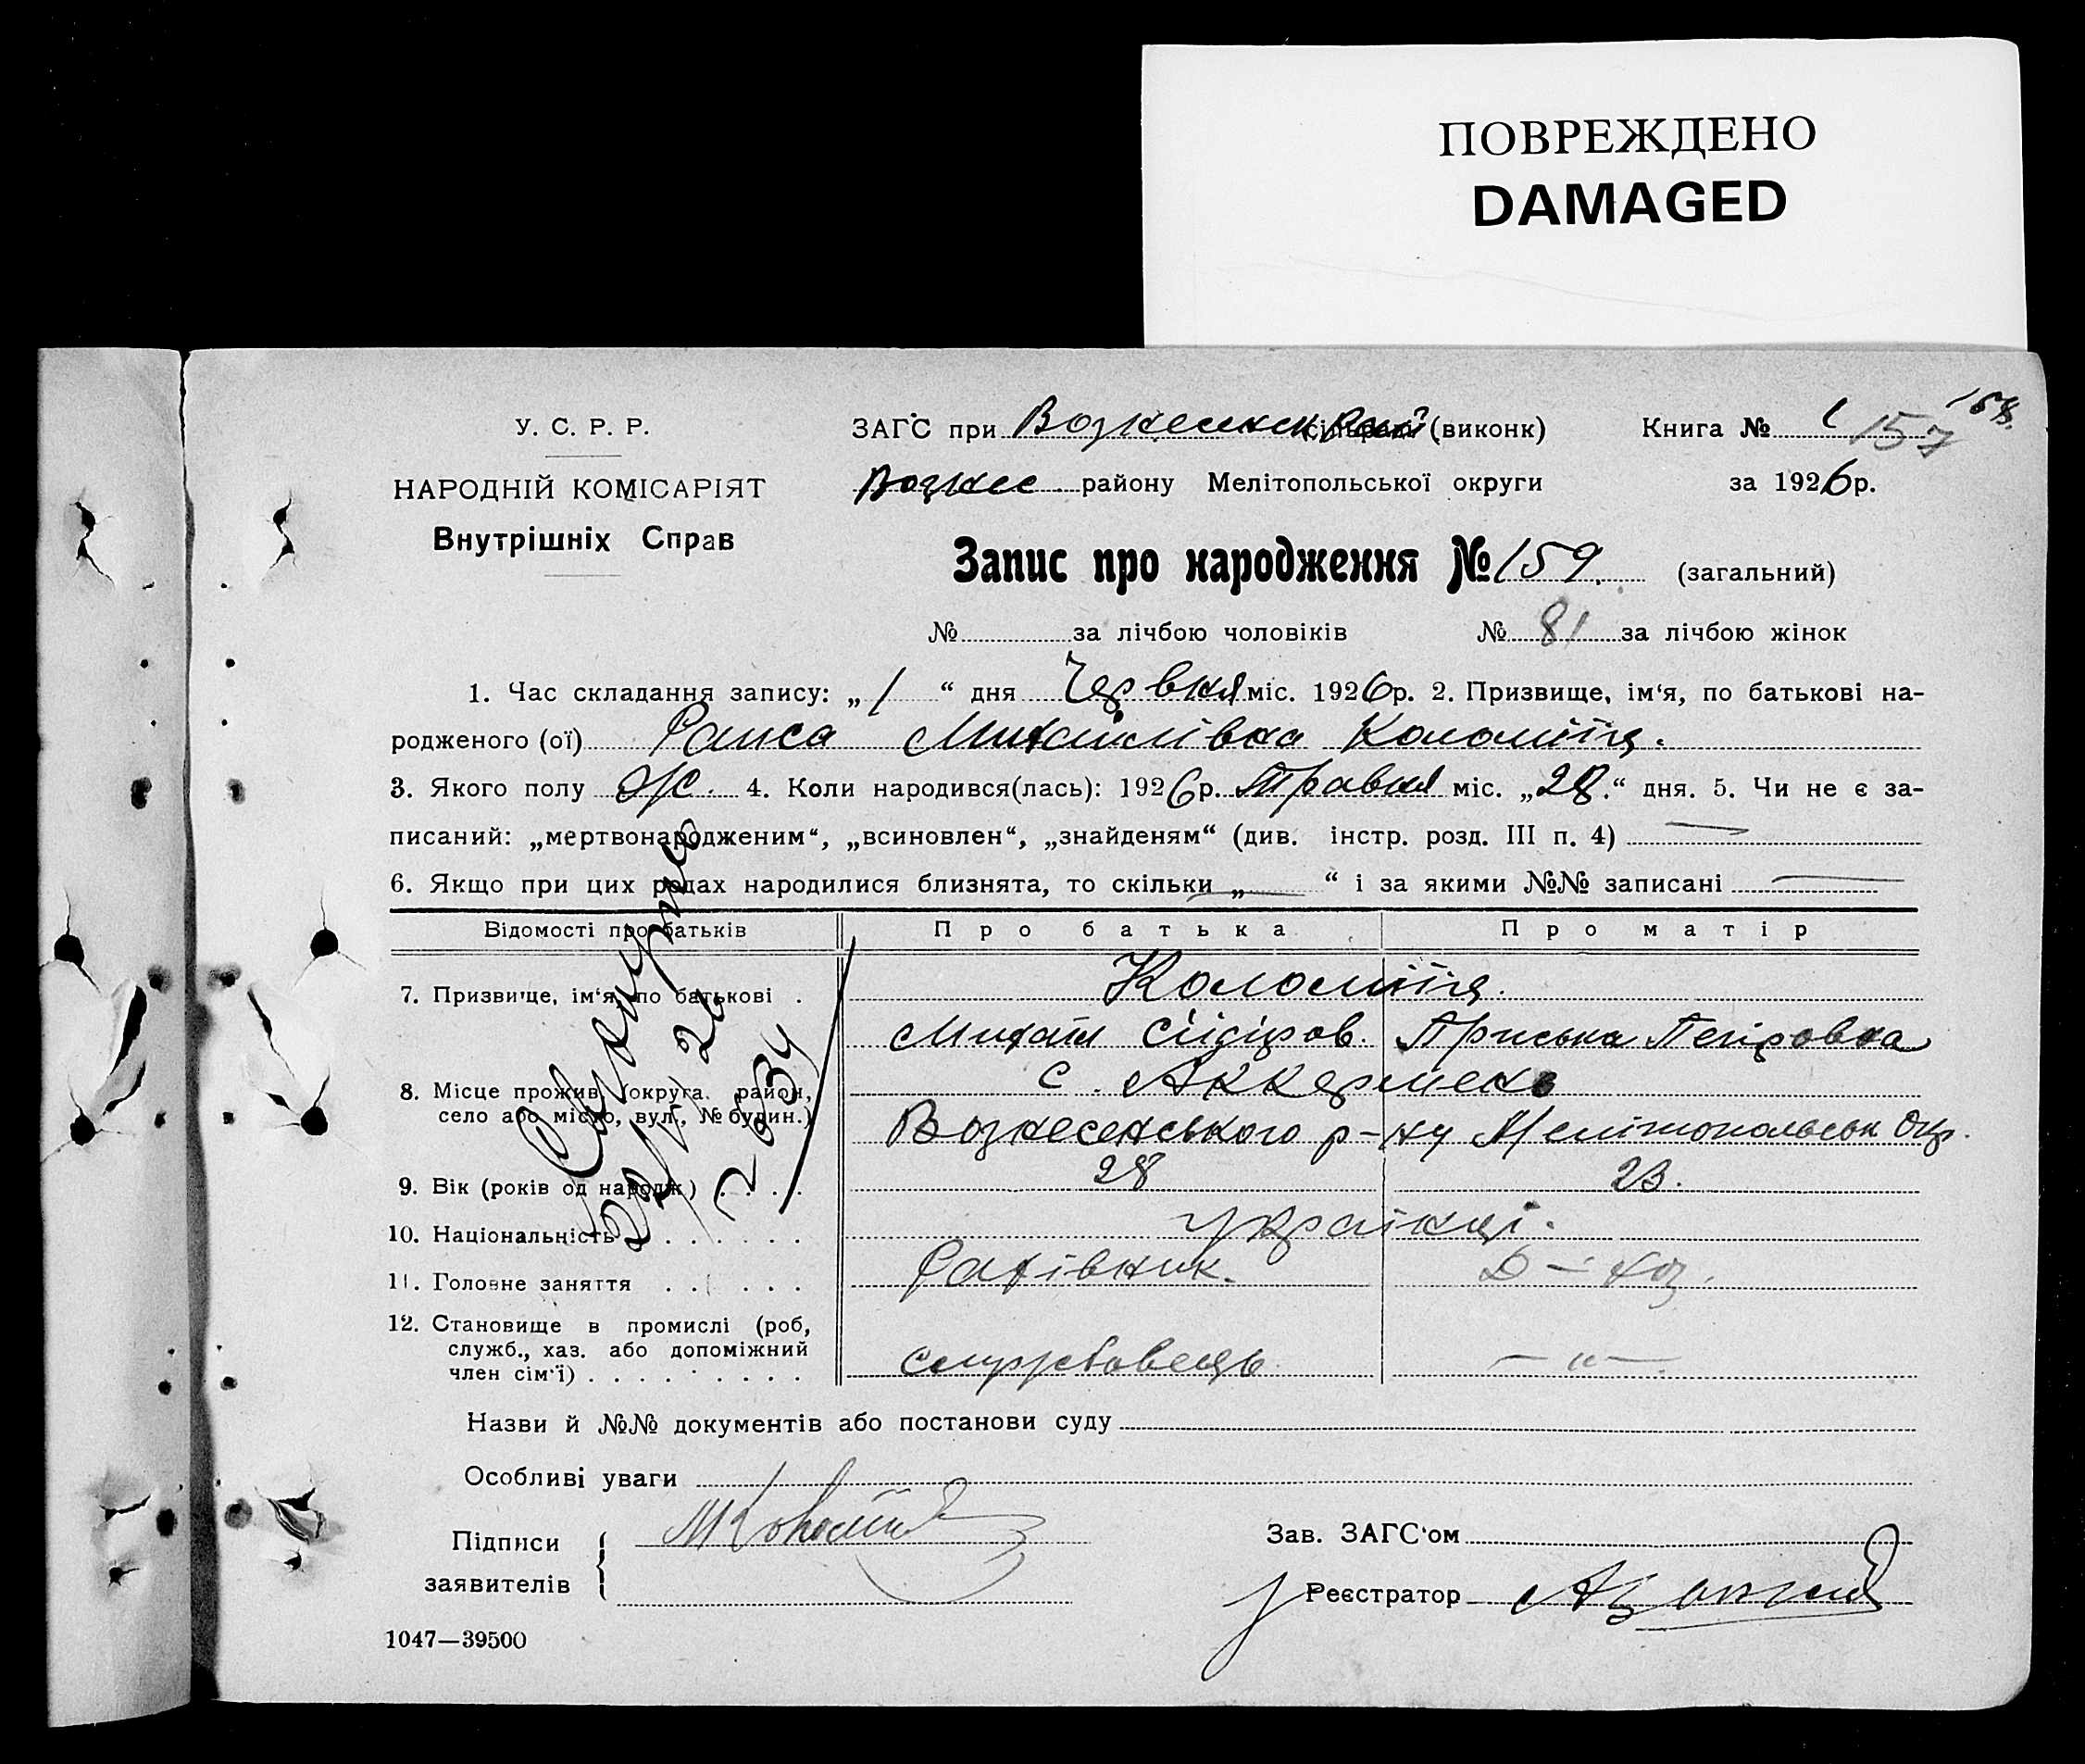 ПОВРЕЖДЕНО
DAMAGED
У. С. Р. Р.
НАРОДНІЙ КОМІСАРІЯТ
Внутрішніх Справ
ЗАГС при (виконк)
Книга № 1 157 158.
Вознес району Мелітопольської округи
за 1926 р.
Запис про народження № 159. (загальний)
№ за лічбою чоловіків № 81 за лічбою жінок
1. Час складання запису: „1“ дня Червня міс. 1926 р. 2. Призвище, ім‘я, по батькові на-
родженого (ої) Раиса Михайлівна Коломійц.
3. Якого полу Ж. 4. Коли народився(лась): 1926 р. Травня міс. „28.“ дня. 5. Чи не є за-
писаний: „мертвонародженим“, „всиновлен“, „знайденям“ (див. інстр. розд. III п. 4) —
6. Якщо при цих родах народилися близнята, то скільки „—“ і за якими №№ записані —
Відомості про батьків Про батька Про матір
7. Призвище, ім‘я, по батькові . Коломійц.
Михайл Сідіров. Приська Петровна
8. Місце прожив. (округа. район, село або місто, вул., № будин.)
с. Аккермень
Вознесенського р-ну Мелітопольськ Окр.
9. Вік (років од народж) . . . . 28 23.
10. Національність . . . . . . . українці.
11. Головне заняття . . . . . . Рахівник. Д-хоз.
12. Становище в промислі (роб, служб., хаз. або допоміжний член сім‘ї) . . . . . . . . . службовець — „ —
Назви й №№ документів або постанови суду
Особливі уваги
Підписи заявителів
Зав. ЗАГС‘ом
Реєстратор
1047—39500